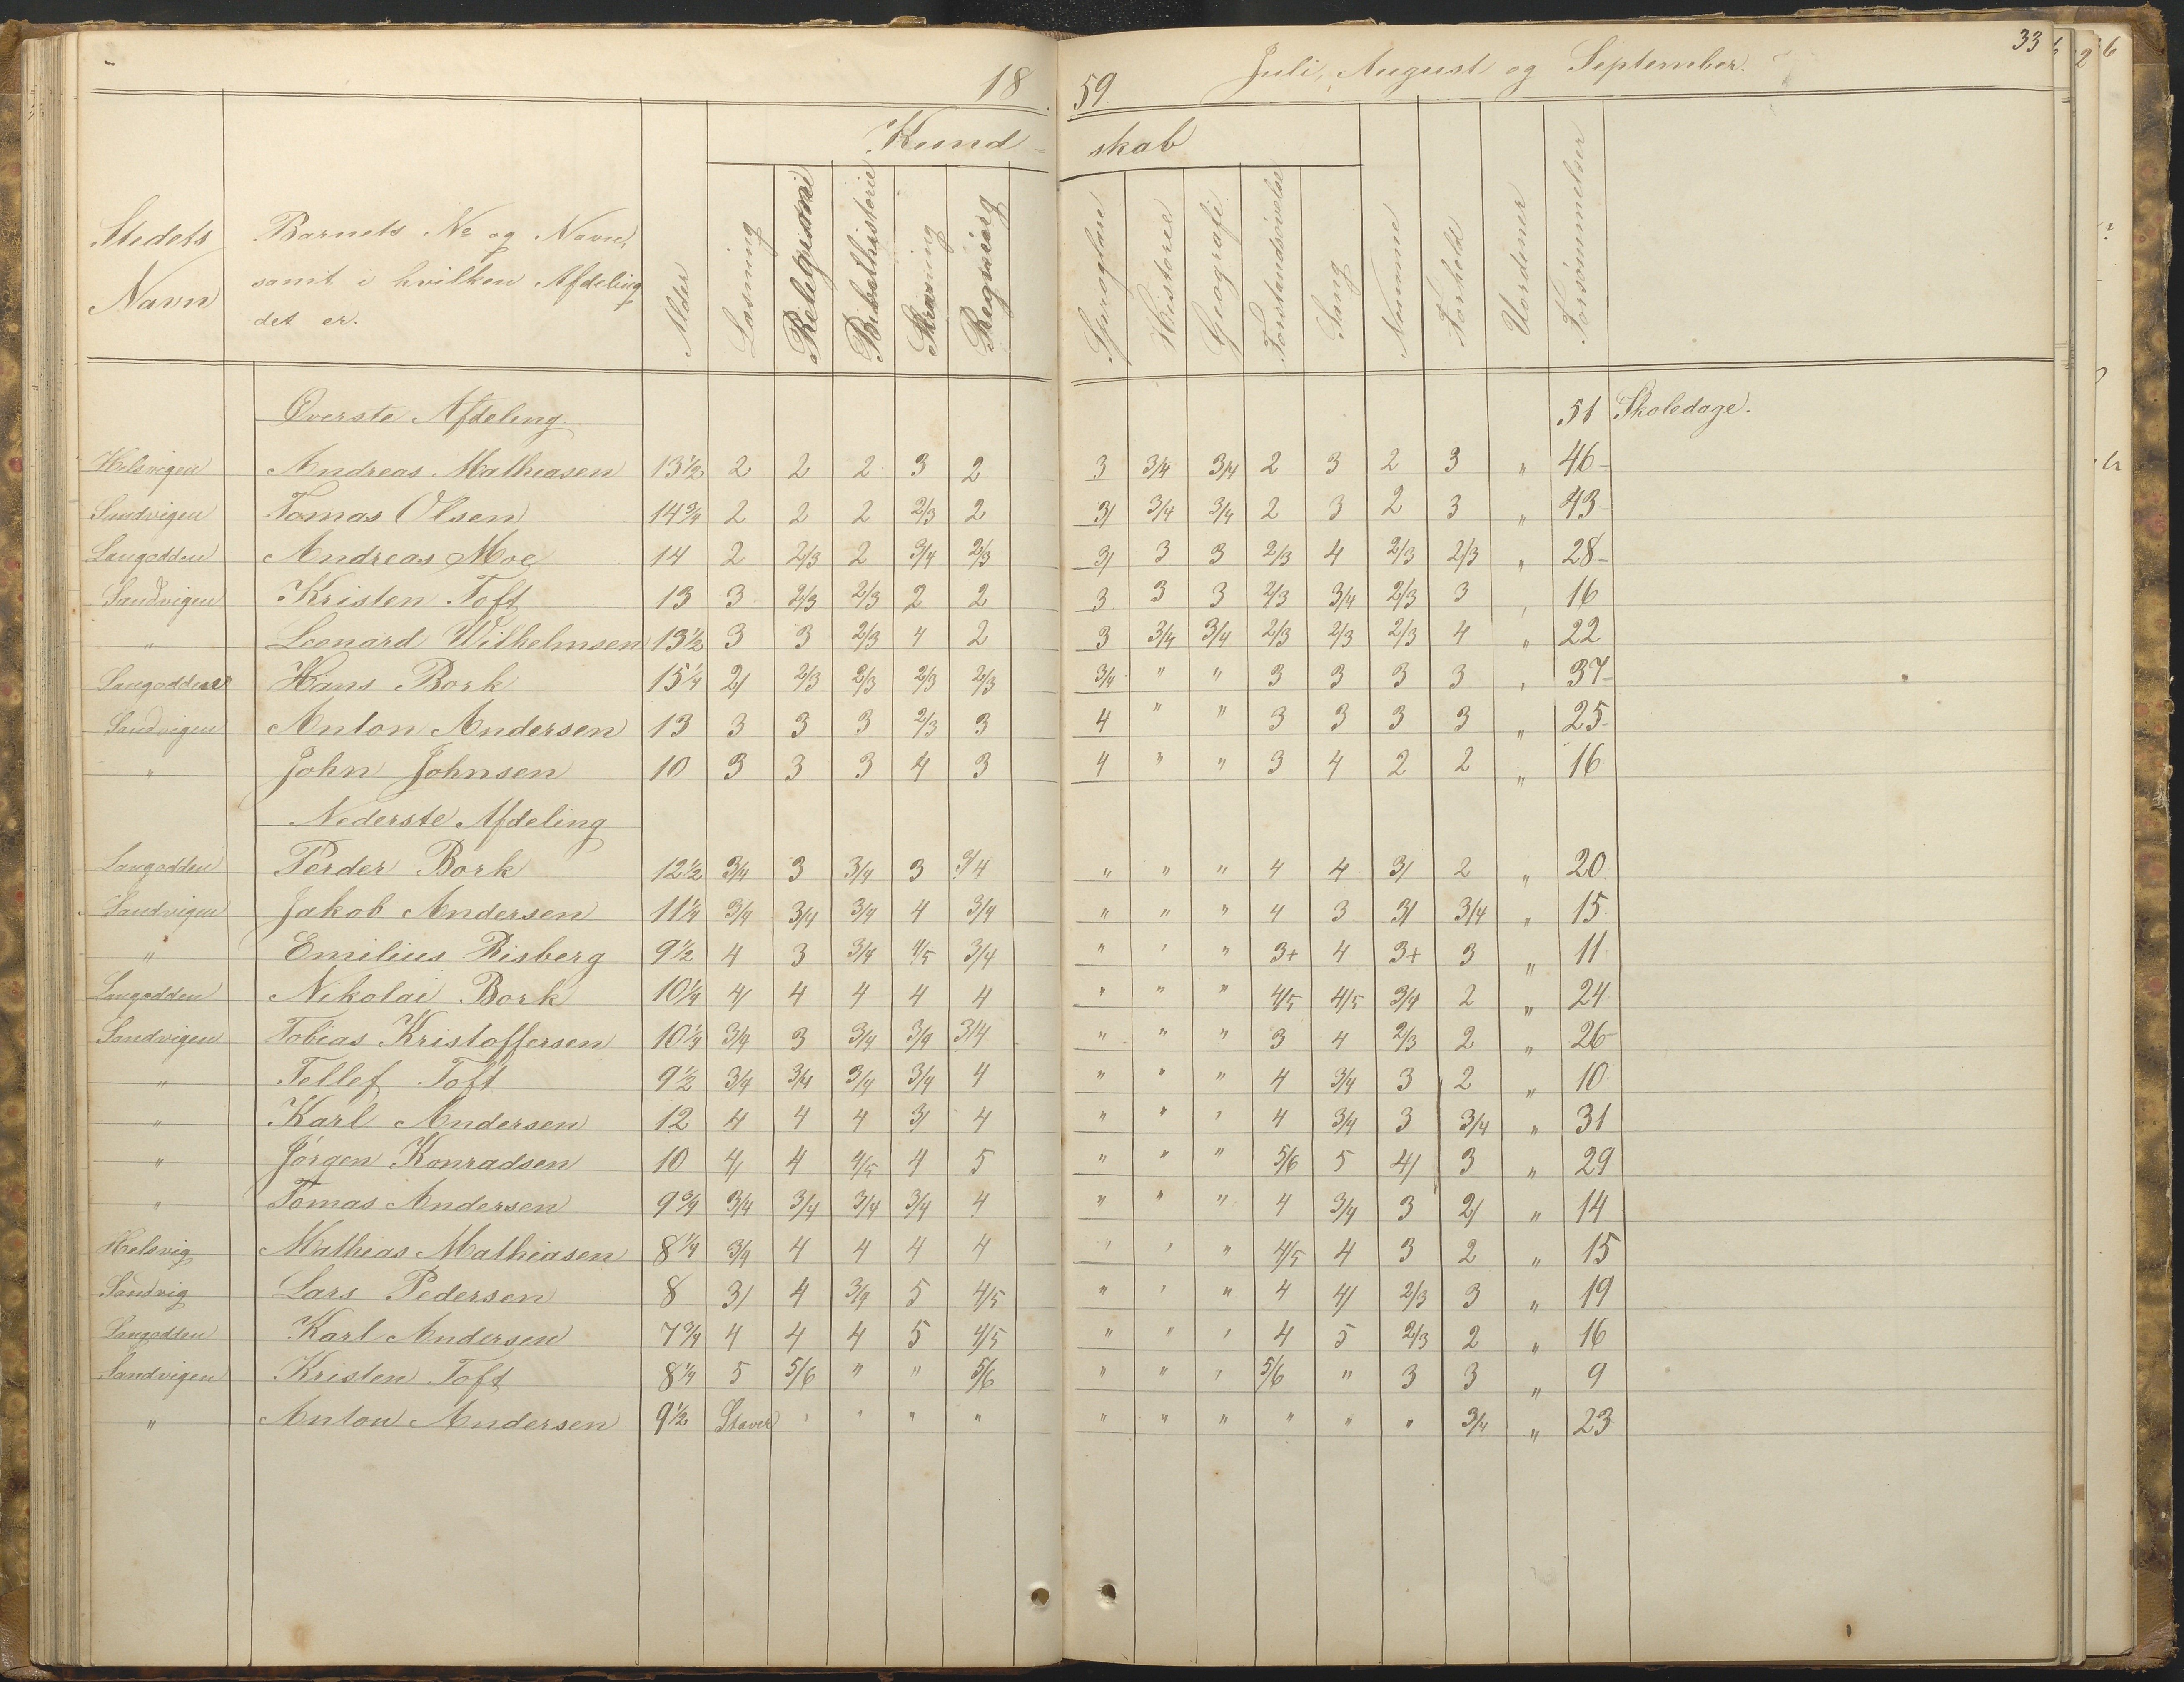 18 59. Juli, August og September. 33
Kund- skab
Stedets Navn
Barnets No og Navn, samt i hvilken Afdeling det er.
Alder
Læsning
Religion
Bibelhistorie
Skrivning
Regning
Sproglære
Historie
Geografi
Forstandsøvelse
Sang
Nemme
Forhold
Uordener
Forsømmelser
Øverste Afdeling 51 Skoledage.
Helsvigen Andreas Mathiasen 13½ 2 2 2 3 2 3 3/4 3/4 2 3 2 3 " 46
Sandvigen Tomas Olsen 14¾ 2 2 2 2/3 2 3/ 3/4 3/4 2 3 2 3 " 43
Langodden Andreas Moe 14 2 2/3 2 3/4 2/3 3/ 3 3 2/3 4 2/3 2/3 " 28
Sandvigen Kristen Toft 13 3 2/3 2/3 2 2 3 3 3 2/3 3/4 2/3 3 " 16
" Leonard Wilhelmsen 13½ 3 3 2/3 4 2 3 3/4 3/4 2/3 2/3 2/3 4 " 22
Langodden Hans Bork 15¼ 2/ 2/3 2/3 2/3 2/3 3/4 " " 3 3 3 3 " 37
Sandvigen Anton Andersen 13 3 3 3 2/3 3 4 " " 3 3 3 3 " 25
" John Johnsen 10 3 3 3 4 3 4 " " 3 4 2 2 " 16
Nederste Afdeling
Langodden Perder Bork 12½ 3/4 3 3/4 3 3/4 " " " 4 4 3/ 2 " 20
Sandvigen Jakob Andersen 11¼ 3/4 3/4 3/4 4 3/4 " " " 4 3 3/ 3/4 " 15
" Emilius Risberg 9½ 4 3 3/4 4/5 3/4 " " " 3+ 4 3+ 3 " 11
Langodden Nikolai Bork 10¼ 4/ 4 4 4 4 " " " 4/5 4/5 3/4 2 " 24
Sandvigen Tobias Kristoffersen 10¼ 3/4 3 3/4 3/4 3/4 " " " 3 4 2/3 2 " 26
" Tellef Toft 9½ 3/4 3/4 3/4 3/4 4 " " " 4 3/4 3 2 " 10
" Karl Andersen 12 4 4 4 3/ 4 " " " 4 3/4 3 3/4 " 31
" Jörgen Konradsen 10 4/ 4 4/5 4 5 " " " 5/6 5 4/ 3 " 29
" Tomas Andersen 9¾ 3/4 3/4 3/4 3/4 4 " " " 4 3/4 3 2/ " 14
Helsvig Mathias Mathiasen 8¼ 3/4 4 4 4 4 " " " 4/5 4 3 2 " 15
Sandvig Lars Pedersen 8 3/ 4 3/4 5 4/5 " " " 4 4/ 2/3 3 " 19
Langodden Karl Andersen 7¾ 4 4 4 5 4/5 " " " 4 5 2/3 2 " 16
Sandvigen Kristen Toft 8¼ 5 5/6 " " 5/6 " " " 5/6 " 3 3 " 9
" Anton Andersen 9½ Staver " " " " " " " " " " 3/4 " 23